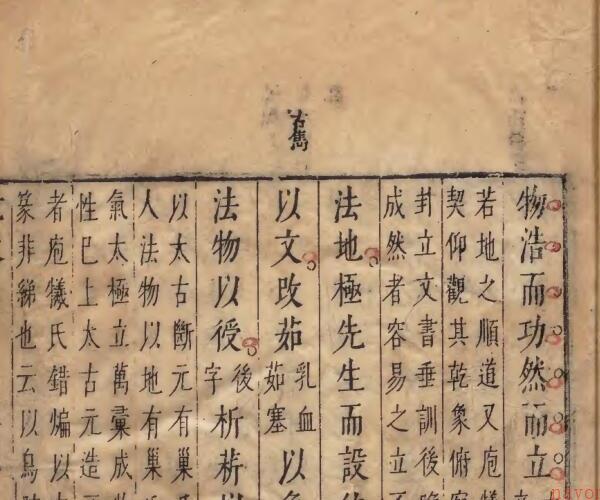 古雋
物浩而功然而立
若地之順道又庖
契仰觀其乾象俯
卦立文書垂訓後
成然者容易之立
法地極先生而設
以文改茹
乳血
茹塞
以
法物以役
後
字
析
以太古斷元有巢
人法物以地有巢
氣太極立萬彙成
性巳上太古元造
者庖犧氏錯煸以
篆非綈也云以鳥